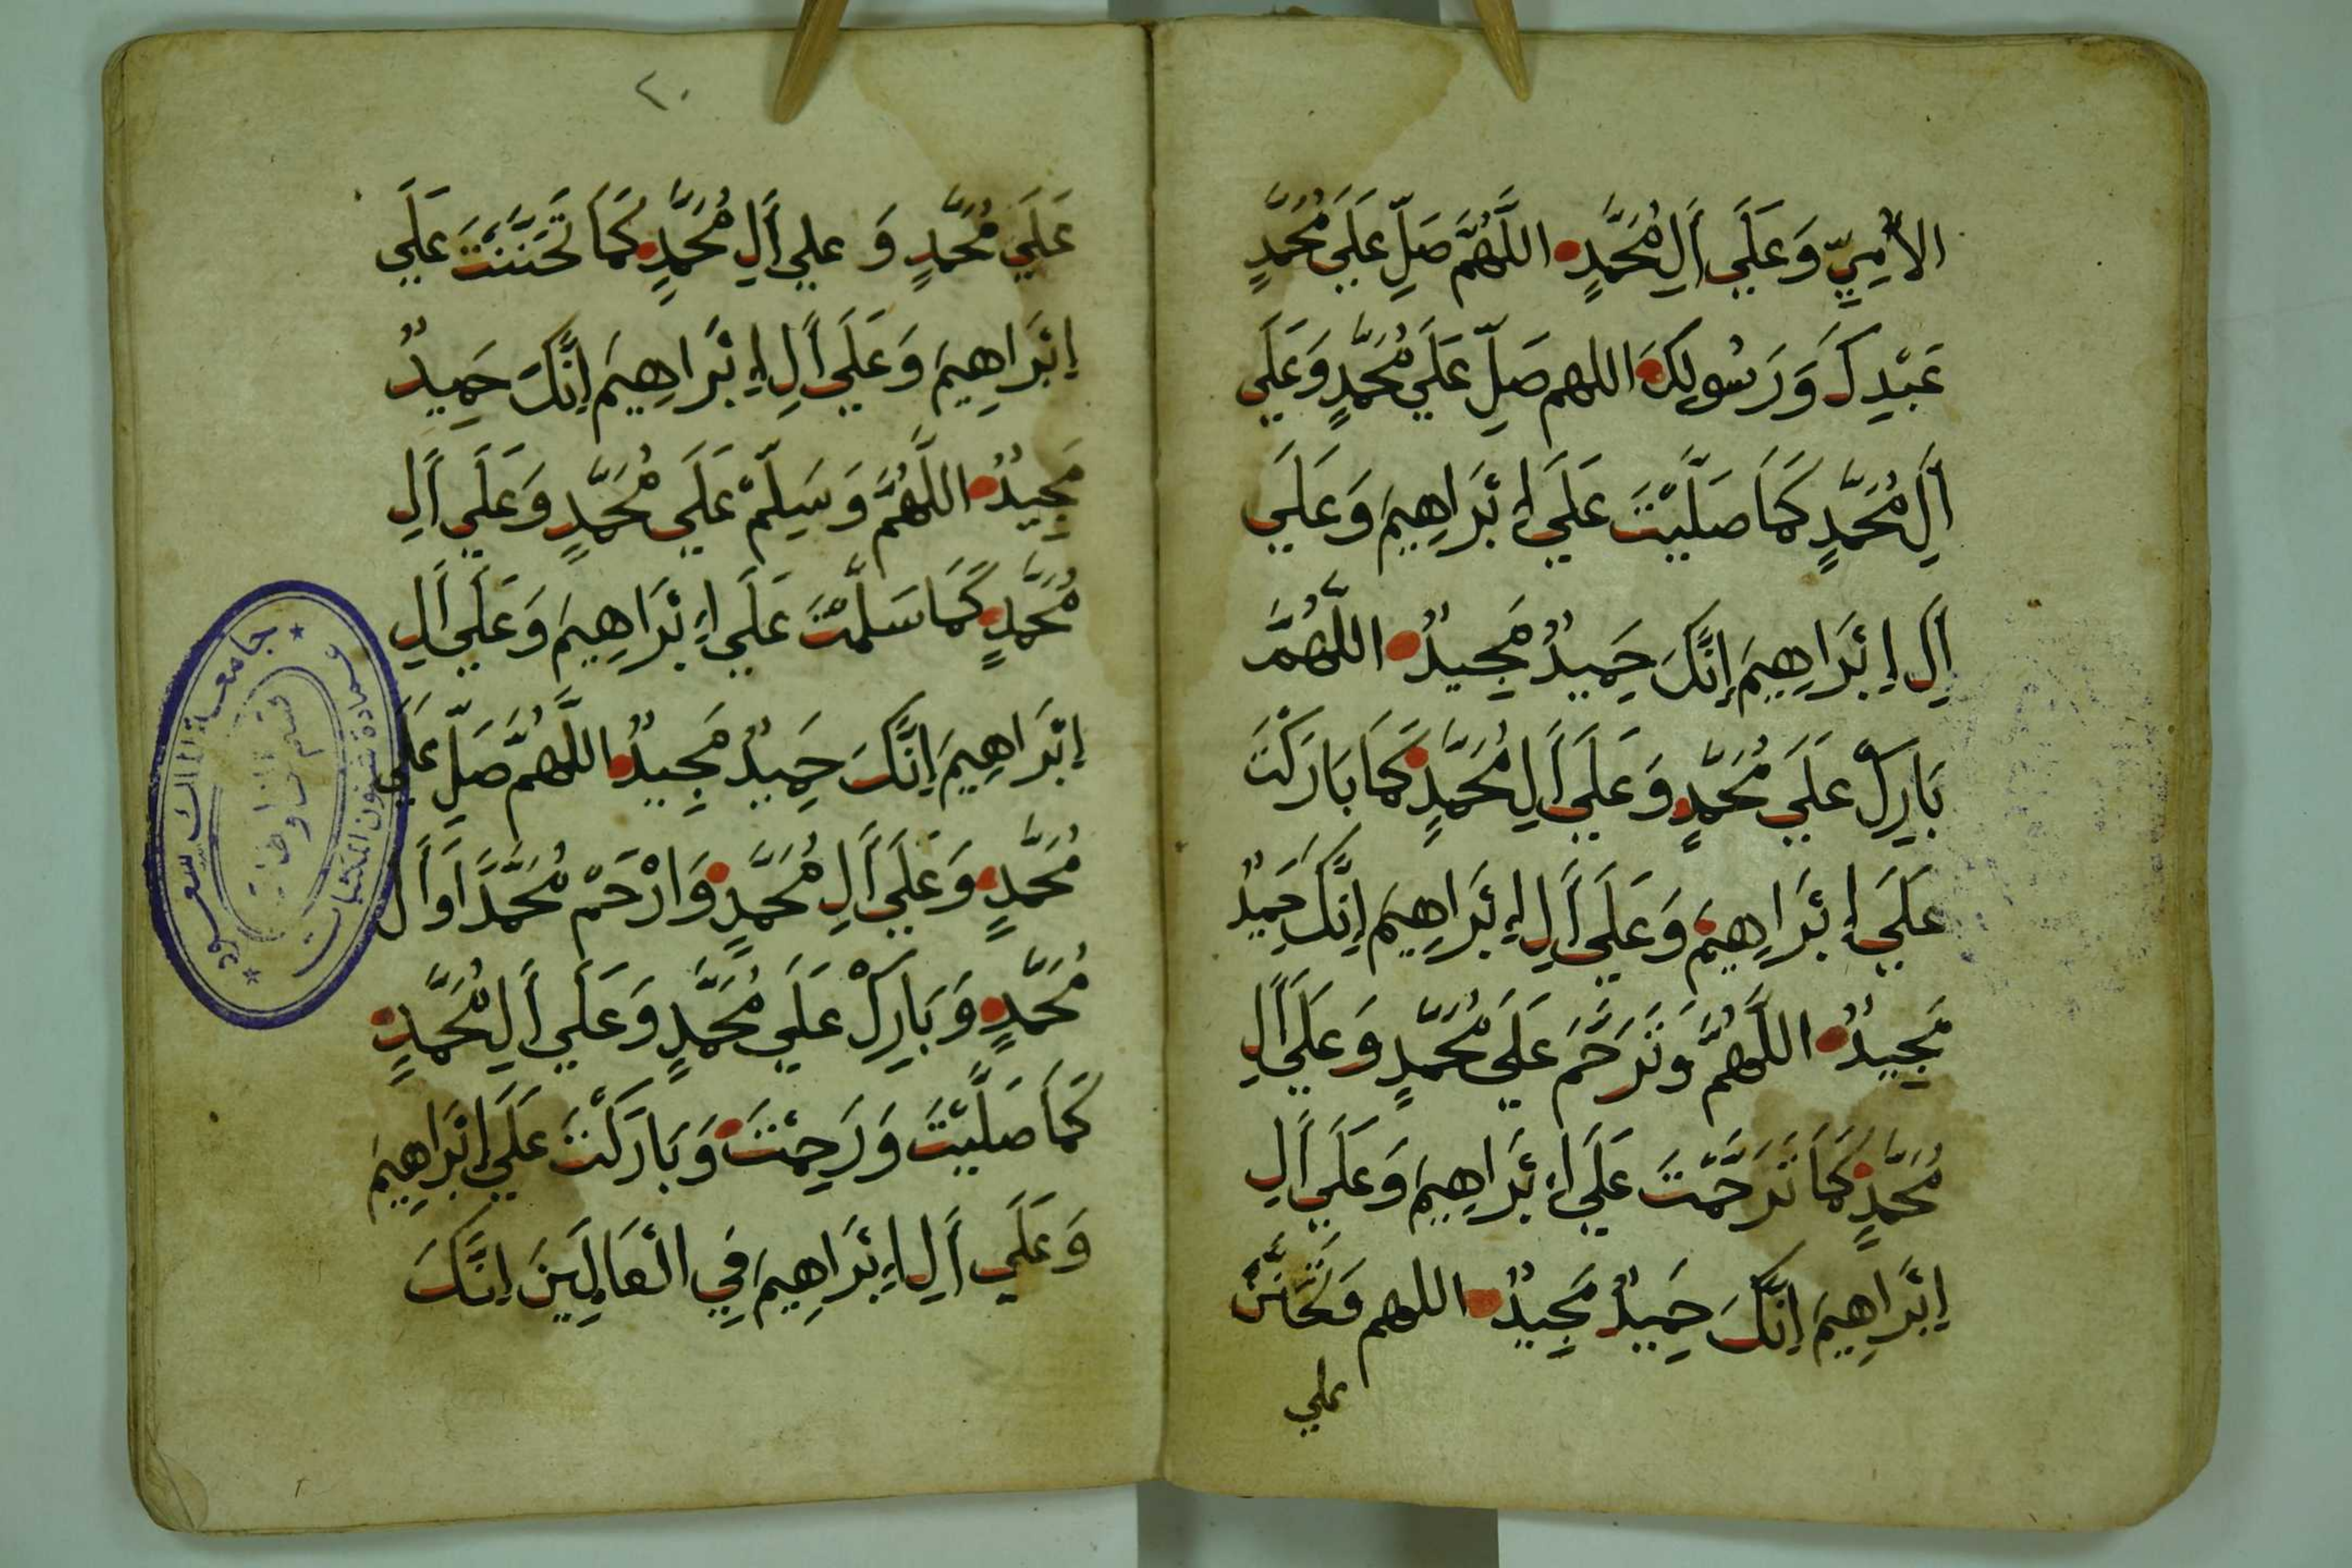 الأُمِّيِّ وَعَلَي أَلِ مُحَمَّدٍ اللَّهُمَّ صَلِّ عَلَي مُحَمَّدٍ
عَبْدِكَ وَرَسُولِكَ اللهم صَلِّ عَلَي مُحَمَّدٍ وَعَلَي
أَلِ مُحَمَّدٍ كَمَا صَلَّيْتَ عَلَي إِبْرَاهِيمَ وَعَلَي
أَلِ إِبْرَاهِيمَ إِنَّكَ حَمِيدٌ مَجِيدٌ اللَّهُمَّ
بَارِكْ عَلَي مُحَمَّدٍ وَعَلَي أَلِ مُحَمَّدٍ كَمَا بَارَكْتَ
عَلَي إِبْرَاهِيمَ وَعَلَي أَلِ إِبْرَاهِيمَ إِنَّكَ حَمِيدٌ
مَجِيدٌ اللَّهُمَّ وَتَرَحَّمْ عَلَي مُحَمَّدٍ وَعَلَي أَلِ
مُحَمَّدٍ كَمَا تَرَحَّمْتَ عَلَي إِبْرَاهِيمَ وَعَلَي أَلِ
إِبْرَاهِيمَ إِنَّكَ حَمِيدٌ مَجِيدٌ اللهم وَتَحَنَّنْ
علي
٢٠
عَلَي مُحَمَّدٍ وَ علي أَلِ مُحَمَّدٍ كَمَا تَحَنَّنْتَ عَلَي
إِبْرَاهِيمَ وَعَلَي أَلِ إِبْرَاهِيمَ إِنَّكَ حَمِيدٌ
مَجِيدٌ اللَّهُمَّ وَسَلِّمْ عَلَي مُحَمَّدٍ وَعَلَي أَلِ
مُحَمَّدٍ كَمَا سَلَّمْتَ عَلَي إِبْرَاهِيمَ وَعَلَي أَلِ
إِبْرَاهِيمَ إِنَّكَ حَمِيدٌ مَجِيدٌ اللَّهُمَّ صَلِّ عَلَي
مُحَمَّدٍ وَعَلَي أَلِ مُحَمَّدٍ وَارْحَمْ مُحَمَّدًا وَأَلَ
مُحَمَّدٍ وَبَارِكْ عَلَي مُحَمَّدٍ وَعَلَي أَلِ مُحَمَّدٍ
كَمَا صَلَّيْتَ وَرَحِمْتَ وَبَارَكْتَ عَلَي إِبْرَاهِيمَ
وَعَلَي أَلِ إِبْرَاهِيمَ فِي الْعَالَمِينَ إِنَّكَ
جامعة الملك سعود
عمادة شئون المكتبات
قسم المخطوطات